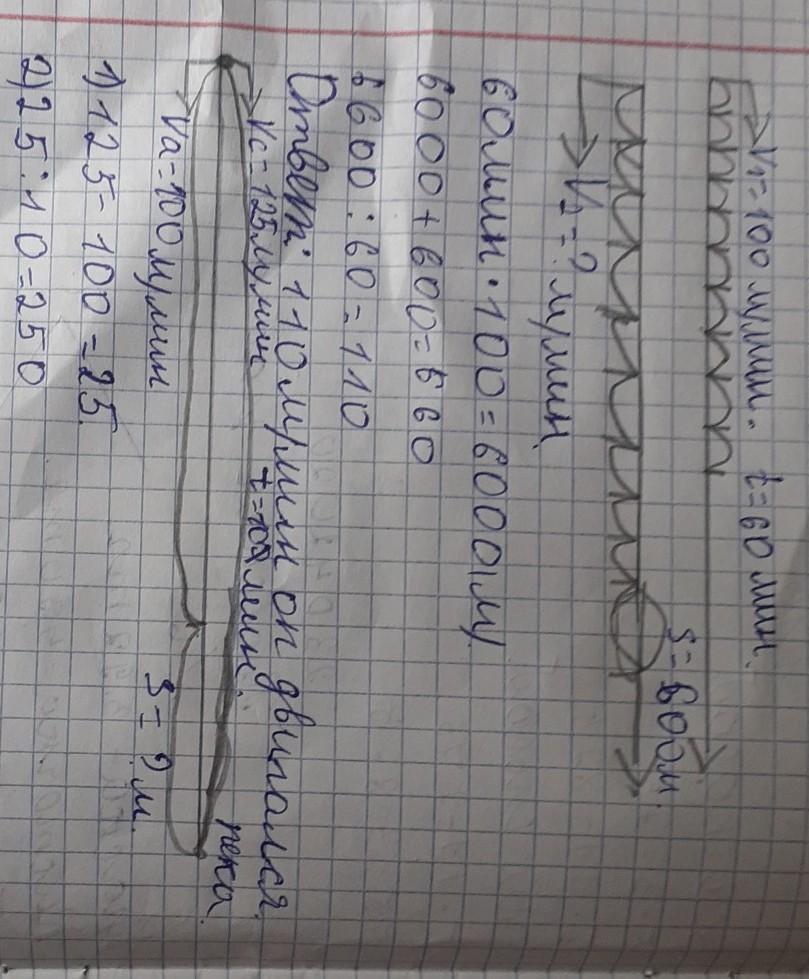 V₁=100 м/мин. t=60 мин.
S=600м.
V₂=? м/мин.
60мин·100=6000(м)
6000+600=660
6600:60=110
Ответ: 110 м/мин он двигался.
Vc=125м/мин t=10 мин.
река.
Va=100м/мин S=? м.
1)125-100=25.
2)25·10=250